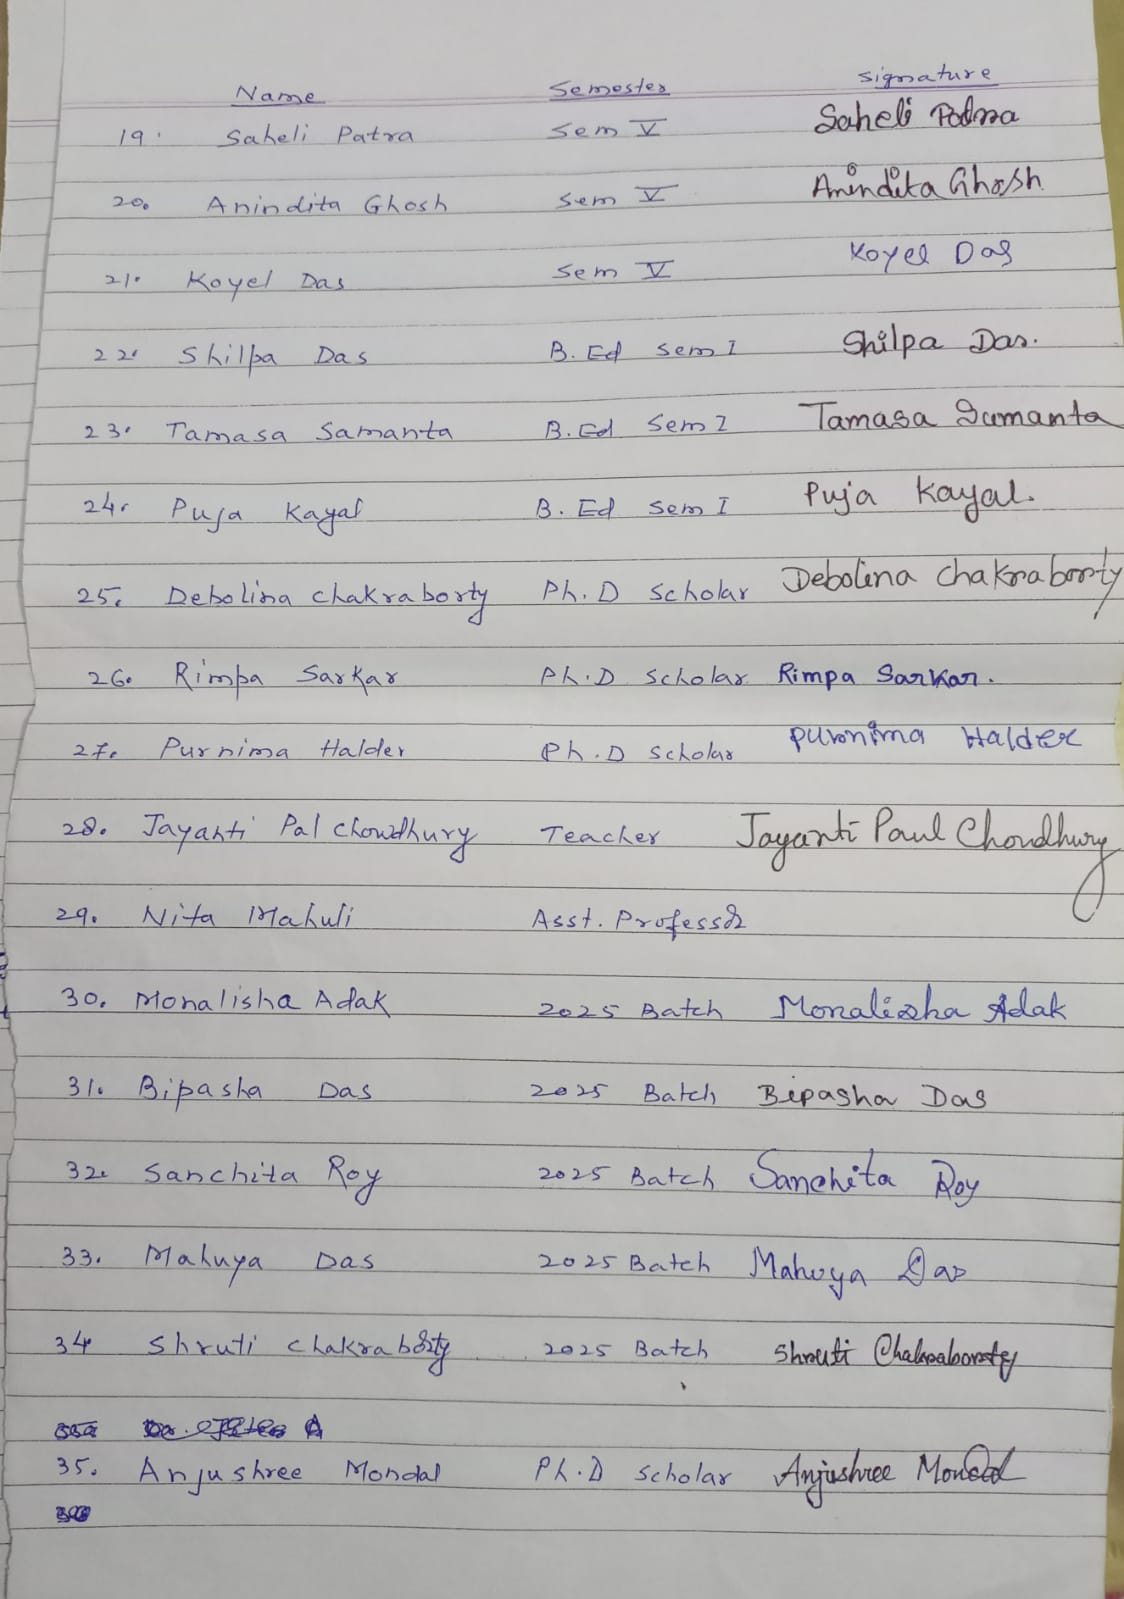 Name Semester Signature
19. Saheli Patra Sem V Saheli Patra
20. Anindita Ghosh Sem V Anindita Ghosh
21. Koyel Das Sem V Koyel Das
22. Shilpa Das B.Ed Sem I Shilpa Das.
23. Tamasa Samanta B.Ed Sem I Tamasa Samanta
24. Puja Kayal B.Ed Sem I Puja Kayal.
25. Debolina Chakraborty Ph.D Scholar Debolina Chakraborty
26. Rimpa Sarkar Ph.D Scholar Rimpa Sarkar.
27. Purnima Halder Ph.D Scholar Purnima Halder
28. Jayanti Pal Chowdhury Teacher Jayanti Paul Choudhury
29. Nita Mahuli Asst. Professor
30. Monalisha Adak 2025 Batch Monalisha Adak
31. Bipasha Das 2025 Batch Bipasha Das
32. Sanchita Roy 2025 Batch Sanchita Roy
33. Mahuya Das 2025 Batch Mahuya Das
34 Shruti Chakraborty 2025 Batch Shruti Chakraborty
35. Anjushree Mondal Ph.D Scholar Anjushree Mondal